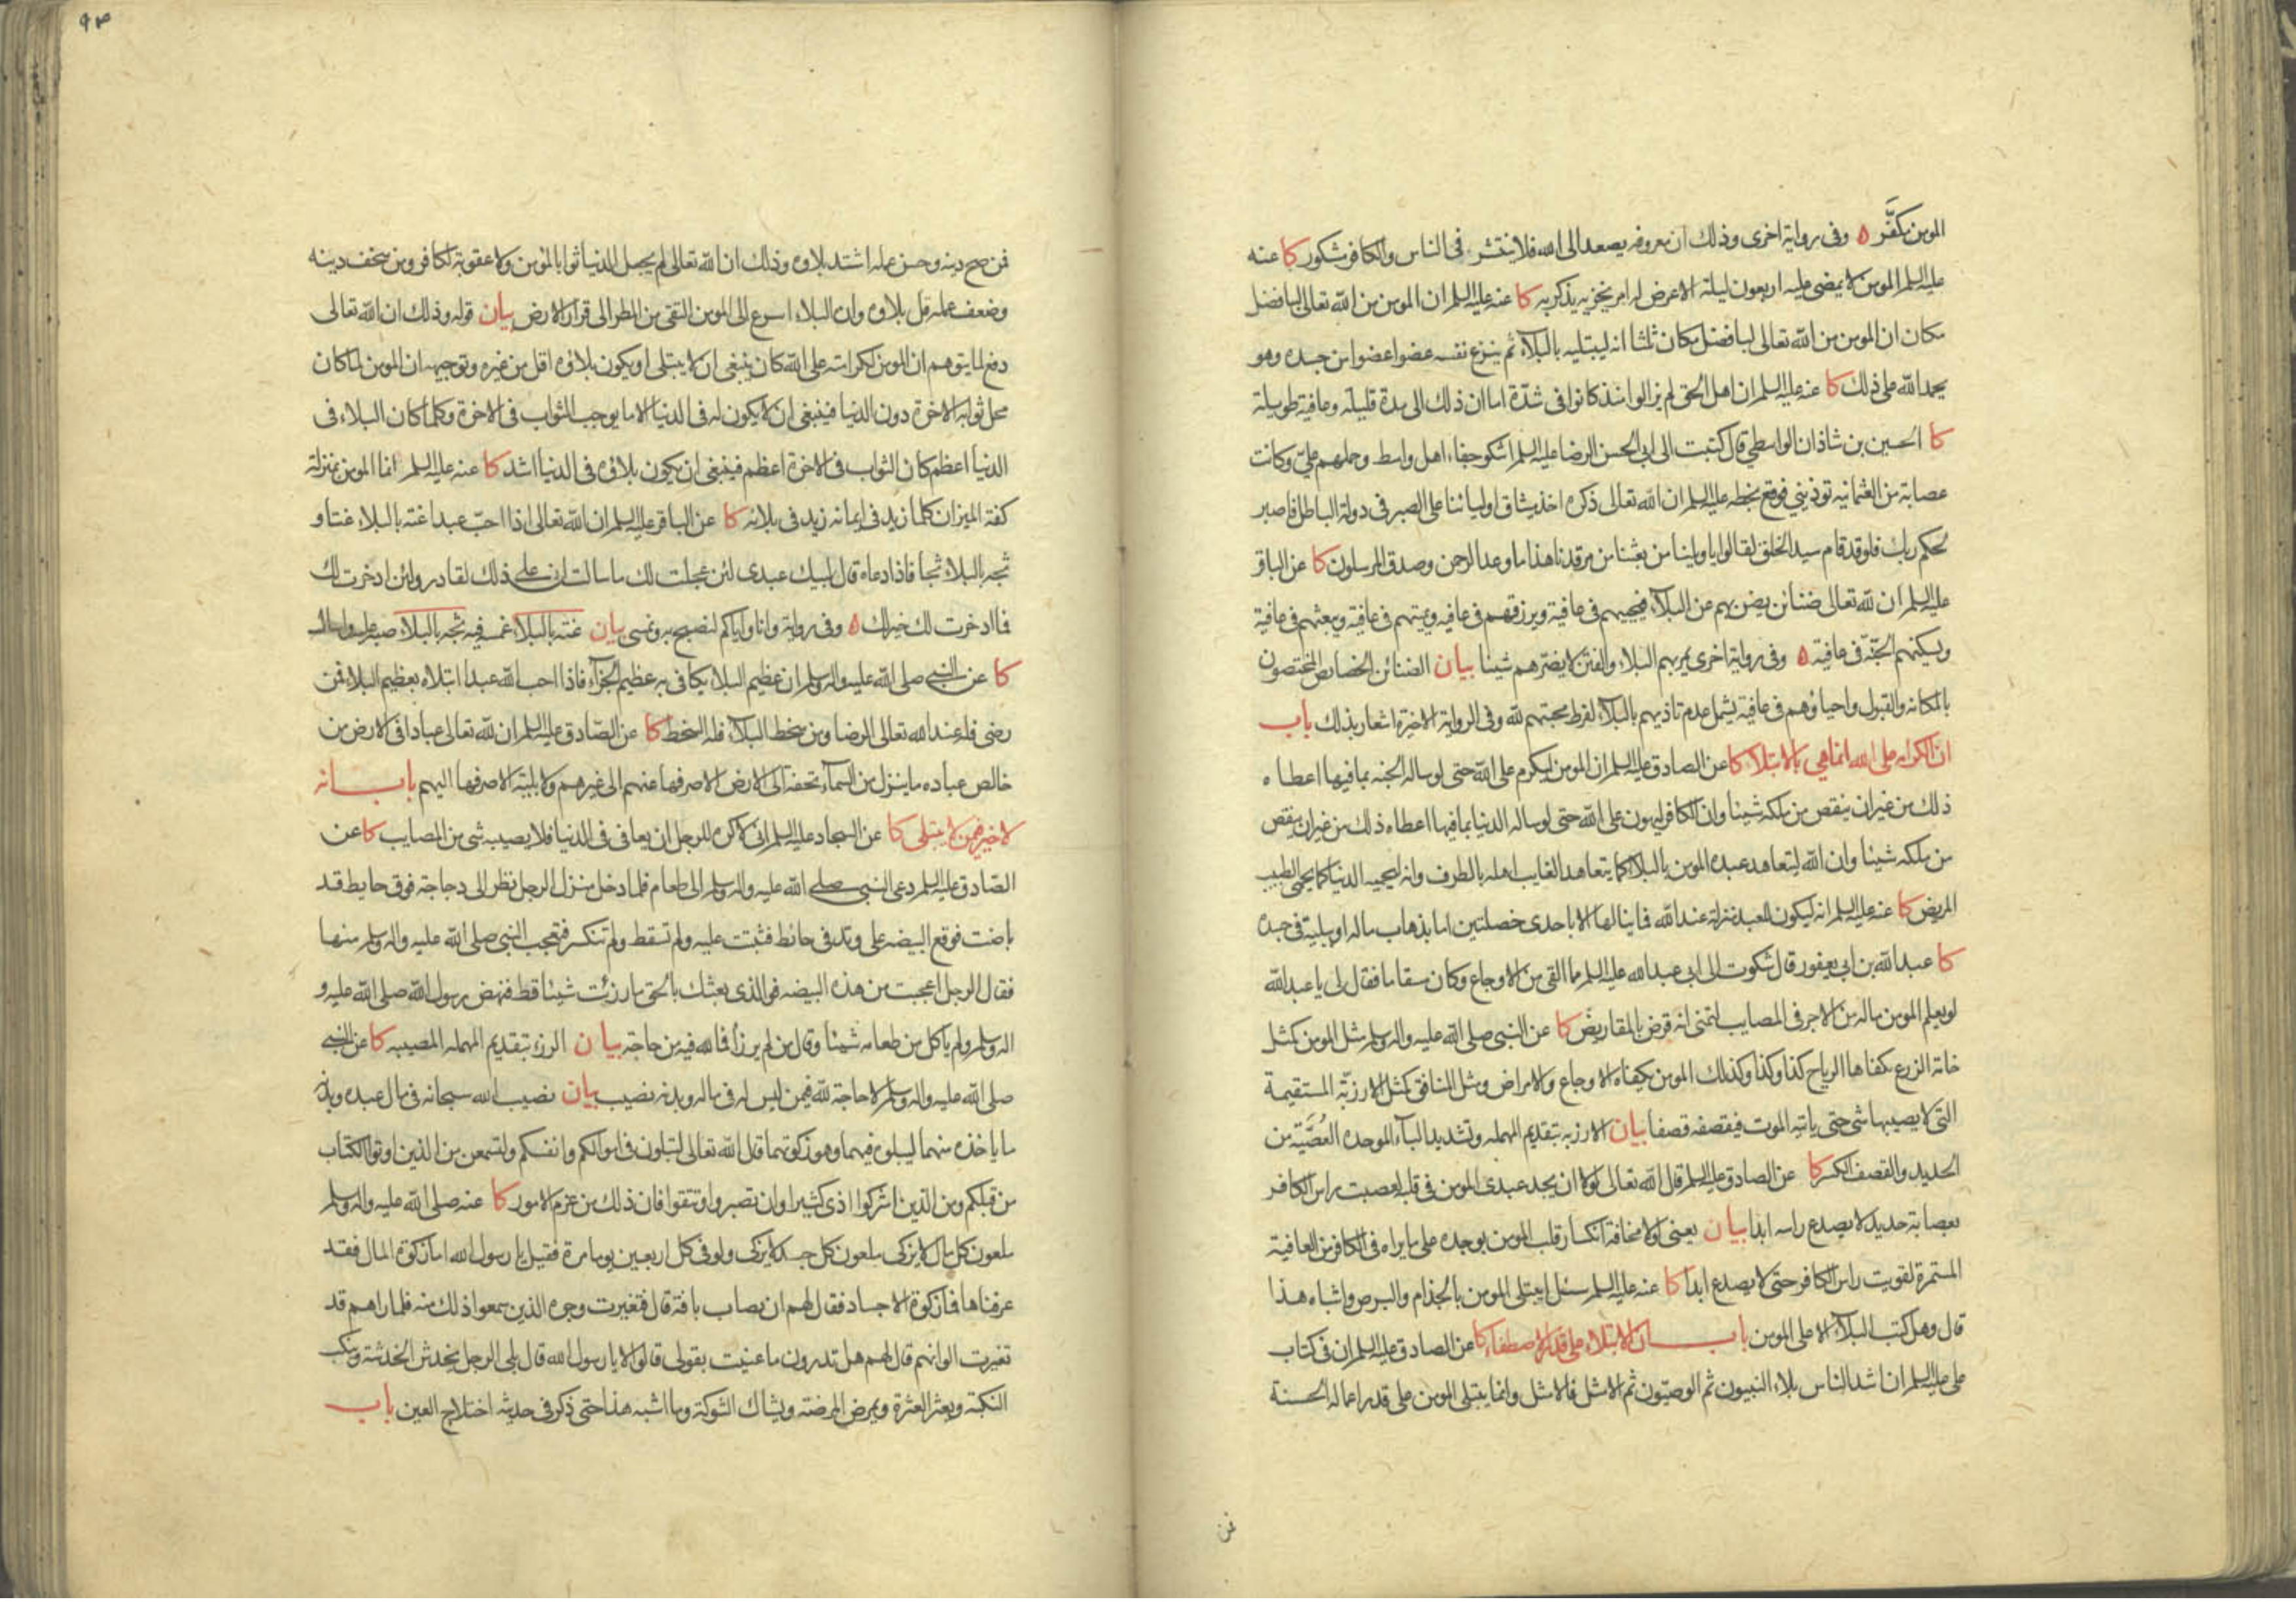 المومن مكفَّر ه وفى رواية اخرى وذلك ان معروفه يصعد الى الله فلا ينتشر فى الناس والكافر مشكور كا عنه
عليه السلم المومن لا يمضى عليه اربعون ليلة الا عرض له امر يحزنه يذكر به كا عنه عليه السلم ان المومن من الله تعالى لبافضل
مكان ان المومن من الله تعالى لبافضل مكان ثلثا انه ليبتليه بالبلاء ثم ينزع نفسه عضوا عضوا من جسده وهو
يحمد الله على ذلك كا عنه عليه السلم ان اهل الحق لم يزالوا منذ كانوا فى شدّة اما ان ذلك الى مدة قليلة وعافية طويلة
كا الحسين بن شاذان الواسطي قال كتبت الى ابى الحسن الرضا عليه السلم اشكو جفاء اهل واسط وحملهم عليّ وكانت
عصابة من العثمانيه توذيني فوقع بخطه عليه السلم ان الله تعالى ذكره اخذ ميثاق اوليائنا على الصبر فى دولة الباطل فاصبر
لحكم ربك فلو قد قام سيد الخلق لقالوا يا ويلنا من بعثنا من مرقدنا هذا ما وعد الرحمن وصدق المرسلون كا عن الباقر
عليه السلم ان لله تعالى ضنائن يضن بهم عن البلاء فيحييهم فى عافية ويرزقهم فى عافيه ويميتهم فى عافية ويبعثهم فى عافية
ويسكنهم الجنّة فى عافية ه وفى رواية اخرى يمر بهم البلاء والفتن لا يضرّهم شيئا بيان الضنائن الخصايص المختصون
بالمكانه والقبول واحياؤهم فى عافية يشمل عدم تاذيهم بالبلاء لفرط محبتهم لله وفى الرواية الاخيرة اشعار بذلك باب
ان الكرامه على الله انما هي بالابتلاء كا عن الصادق عليه السلم ان المومن ليكرم على الله حتى لو ساله الجنه بما فيها اعطاه
ذلك من غير ان ينقص من ملكه شيئا وان الكافر ليهون على الله حتى لو ساله الدنيا بما فيها اعطاه ذلك من غير ان ينقص
من ملكه شيئا وان الله ليتعاهد عبده المومن بالبلاء كما يتعاهد الغايب اهله بالطرف وانه ليحميه الدنيا كما يحمى الطبيب
المريض كا عنه عليه السلم انه ليكون للعبد منزلة عند الله فما ينالها الا باحدى خصلتين اما بذهاب ماله او ببلية فى جسده
كا عبد الله بن ابى يعفور قال شكوت الى ابى عبد الله عليه السلم ما القى من الاوجاع وكان مسقاما فقال لى يا عبد الله
لو يعلم المومن ماله من الاجر فى المصايب لتمنى انه قرض بالمقاريض كا عن النبى صلى الله عليه واله وسلم مثل المومن كمثل
خامة الزرع تكفاها الرياح كذا وكذا وكذلك المومن تكفاه الاوجاع والامراض ومثل المنافق كمثل الارزبّة المستقيمة
التى لا يصيبها شى حتى ياتيه الموت فيقصفه قصفا بيان الارزبه بتقديم المهمله وتشديد الباء الموحده العُصَيَّة من
الحديد والقصف الكسر كا عن الصادق عليه السلم قال الله تعالى لولا ان يجد عبدى المومن فى قلبه لعصبت راس الكافر
بعصابة حديد لا يصدع راسه ابدا بيان يعنى لولا مخافة انكسار قلب المومن بوجده على ما يراه فى الكافر من العافية
المستمرة لقويت راس الكافر حتى لا يصدع ابدا كا عنه عليه السلم سئل ايبتلى المومن بالجذام والبرص واشباه هذا
قال وهل كتب البلاء الا على المومن باب ان الابتلاء على قدر الاصطفاء كا عن الصادق عليه السلم ان فى كتاب
على عليه السلم ان اشد الناس بلاء النبيون ثم الوصيّون ثم الامثل فالامثل وانما يبتلى المومن على قدر اعماله الحسنة
فمن
٩٣
فمن صح دينه وحسن عمله اشتد بلاوه وذلك ان الله تعالى لم يجعل الدنيا ثوابا لمومن ولا عقوبة لكافر ومن سخف دينه
وضعف عمله قل بلاوه وان البلاء اسرع الى المومن التقى من المطر الى قرار الارض بيان قوله وذلك ان الله تعالى
دفع لما يتوهم ان المومن لكرامته على الله كان ينبغى ان لا يبتلى او يكون بلاؤه اقل من غيره وتوجيهه ان المومن لما كان
محل ثوابه الاخرة دون الدنيا فينبغى ان لا يكون له فى الدنيا الا ما يوجب الثواب فى الاخرة وكلما كان البلاء فى
الدنيا اعظم كان الثواب فى الاخرة اعظم فينبغى ان يكون بلاؤه فى الدنيا اشد كا عنه عليه السلم انما المومن بمنزلة
كفة الميزان كلما زيد فى ايمانه زيد فى بلائه كا عن الباقر عليه السلم ان الله تعالى اذا احبّ عبدا غته بالبلاء غتا و
ثجه بالبلاء ثجا فاذا دعاه قال لبيك عبدى لئن عجلت لك ما سالت انى على ذلك لقادر ولئن ادخرت لك
فما ادخرت لك خير لك ه وفى رواية وانا واياكم لنصبح به ونمسى بيان غته بالبلاء غمسه فيه ثجه بالبلاء صبه عليه واساله
كا عن النبى صلى الله عليه واله وسلم ان عظيم البلاء يكافى به عظيم الجزاء فاذا احب الله عبدا ابتلاه بعظيم البلاء فمن
رضى فله عند الله تعالى الرضا ومن سخط البلاء فله السخط كا عن الصّادق عليه السلم ان لله تعالى عبادا فى الارض من
خالص عباده ما ينزل من السماء تحفة الى الارض الا صرفها عنهم الى غيرهم ولا بلية الا صرفها اليهم باب انه
لا خير فيمن لا يبتلى كا عن السجاد عليه السلم انى لاكره للرجل ان يعافى فى الدنيا فلا يصيبه شى من المصايب كا عن
الصّادق عليه السلم دعى النبى صلى الله عليه واله وسلم الى طعام فلما دخل منزل الرجل نظر الى دجاجة فوق حايط قد
باضت فوقع البيضه على وتد فى حائط فثبتت عليه ولم تسقط ولم تنكسر فتعجب النبى صلى الله عليه واله وسلم منها
فقال الرجل اعجبت من هذه البيضه فوالذى بعثك بالحق ما رزئت شيئا قط فنهض رسول الله صلى الله عليه و
اله وسلم ولم ياكل من طعامه شيئا وقال من لم يرزأ فما لله فيه من حاجة بيان الرزء بتقديم المهمله المصيبه كا عن النبى
صلى الله عليه واله وسلم لا حاجة لله فيمن ليس له فى ماله وبدنه نصيب بيان نصيب الله سبحانه فى مال عبده وبدنه
ما ياخذه منهما ليبلوه فيهما وهو زكوتهما قال الله تعالى لتبلون فى اموالكم وانفسكم ولتسمعن من الذين اوتوا الكتاب
من قبلكم ومن الذين اشركوا اذى كثيرا وان تصبروا وتتقوا فان ذلك من عزم الامور كا عنه صلى الله عليه واله وسلم
ملعون كل مال لا يزكى ملعون كل جسد لا يزكى ولو فى كل اربعين يوما مرة فقيل يا رسول الله اما زكوة المال فقد
عرفناها فما زكوة الاجساد فقال لهم ان يصاب بافة قال فتغيرت وجوه الذين سمعوا ذلك منه فلما راهم قد
تغيرت الوانهم قال لهم هل تدرون ما عنيت بقولى قالوا لا يا رسول الله قال بلى الرجل يخدش الخدشة وينكب
النكبة ويعثر العثرة ويمرض المرضة ويشاك الشوكة وما اشبه هذا حتى ذكر فى حديثه اختلاج العين باب